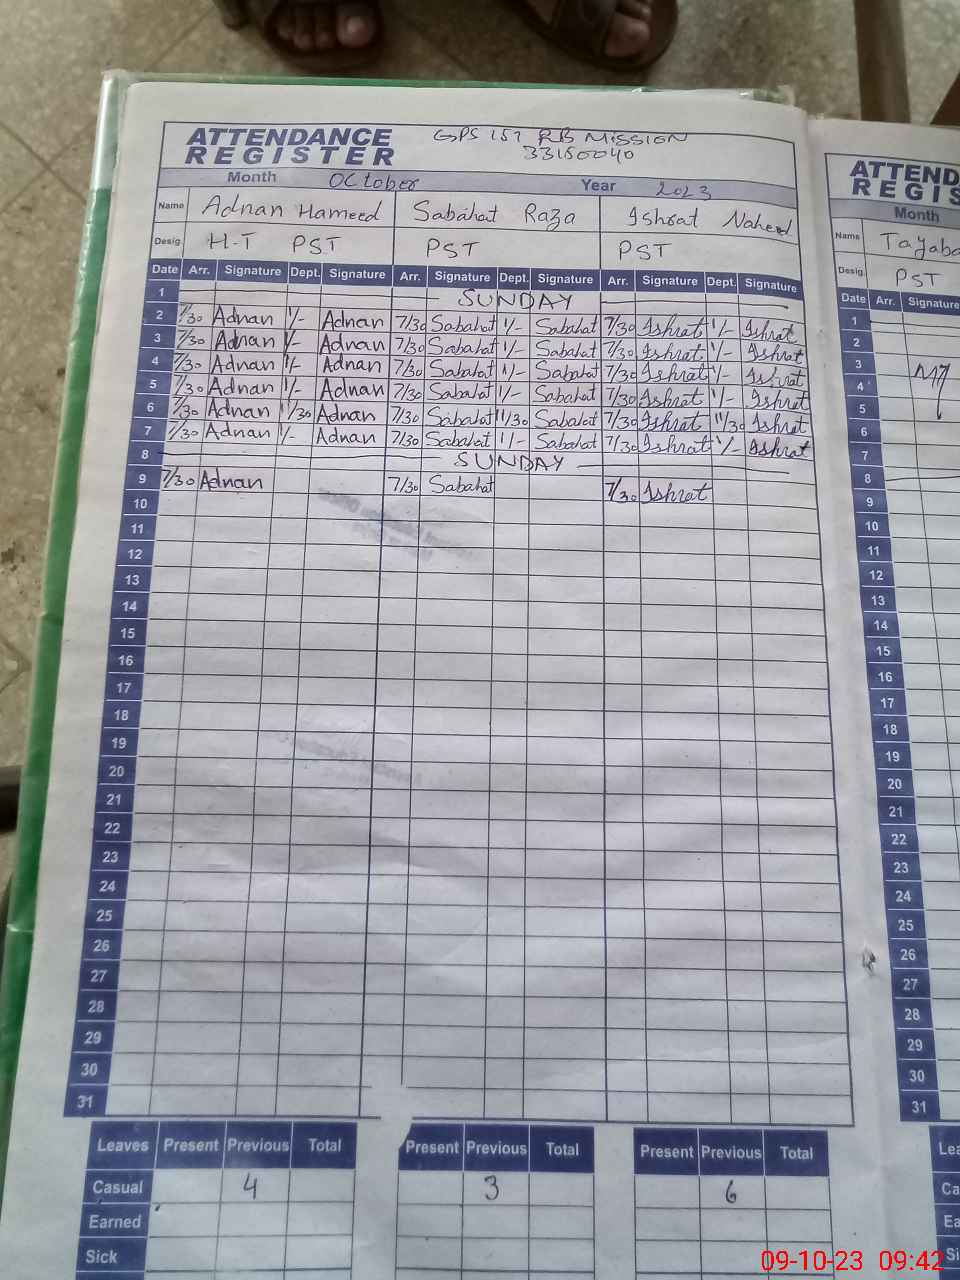 ATTENDANCE REGISTER GPS 157 RB MISSION
33150040
Month October Year 2023
Name Adnan Hameed Sabahat Raza Ishrat Naheed
Desig. H-T PST PST PST
Date Arr. Signature Dept. Signature Arr. Signature Dept. Signature Arr. Signature Dept. Signature
1 SUNDAY
2 7/30 Adnan 1/- Adnan 7/30 Sabahat 1/- Sabahat 7/30 Ishrat 1/- Ishrat
3 7/30 Adnan 1/- Adnan 7/30 Sabahat 1/- Sabahat 7/30 Ishrat 1/- Ishrat
4 7/30 Adnan 1/- Adnan 7/30 Sabahat 1/- Sabahat 7/30 Ishrat 1/- Ishrat
5 7/30 Adnan 1/- Adnan 7/30 Sabahat 1/- Sabahat 7/30 Ishrat 1/- Ishrat
6 7/30 Adnan 11/30 Adnan 7/30 Sabahat 11/30 Sabahat 7/30 Ishrat 11/30 Ishrat
7 7/30 Adnan 1/- Adnan 7/30 Sabahat 1/- Sabahat 7/30 Ishrat 1/- Ishrat
8 SUNDAY
9 7/30 Adnan 7/30 Sabahat 7/30 Ishrat
10
11
12
13
14
15
16
17
18
19
20
21
22
23
24
25
26
27
28
29
30
31
Leaves Present Previous Total Present Previous Total Present Previous Total
Casual 4 3 6
Earned
Sick
ATTEND
REGIS
Month
Name Tayaba
Desig. PST
Date Arr. Signature
1
2
3
4
5
6
7
8
9
10
11
12
13
14
15
16
17
18
19
20
21
22
23
24
25
26
27
28
29
30
31
Lea
Ca
Ea
Si
09-10-23 09:42